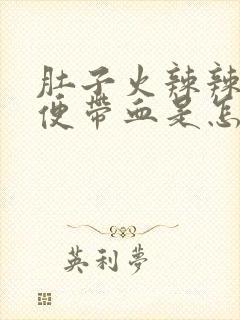 肚子火辣辣
便带血是怎
英利夢